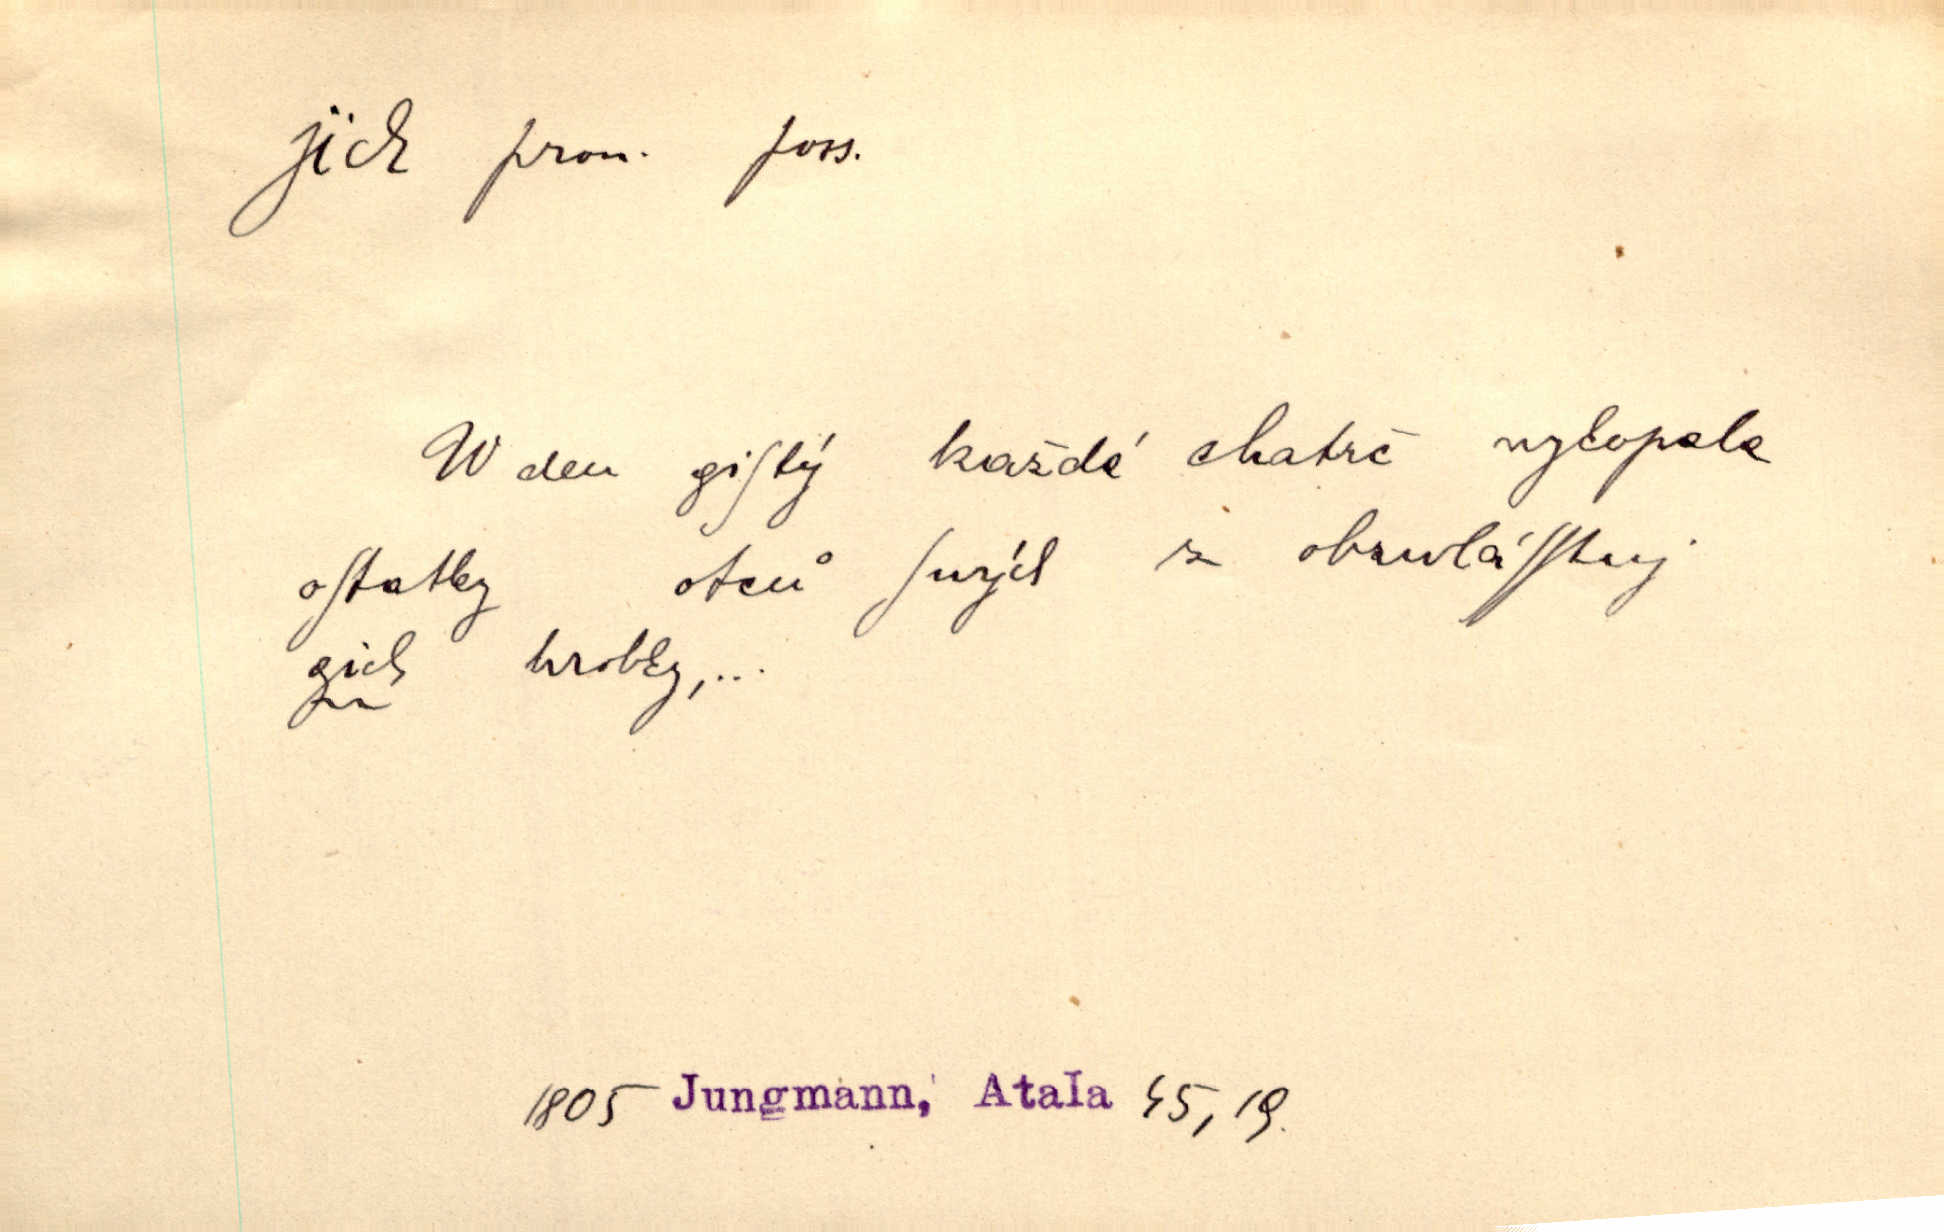 jich pron. poss.
W den giſtý každá chatrč wykopala
oſtatky otců ſwých z obzwláſſtnj
gich hrobky,...
1805 Jungmann, Atala 45, 19.